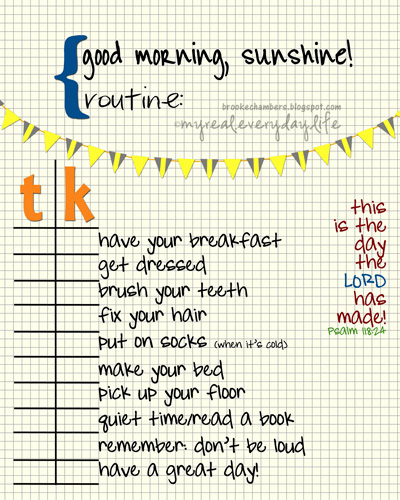 good morning, sunshine!
routine:
brookechambers.blogspot.com
©myreal.everyday.life
t k
have your breakfast
get dressed
brush your teeth
fix your hair
put on socks (when it's cold)
make your bed
pick up your floor
quiet time/read a book
remember: don't be loud
have a great day!
this
is the
day
the
LORD
has
made!
Psalm 118:24